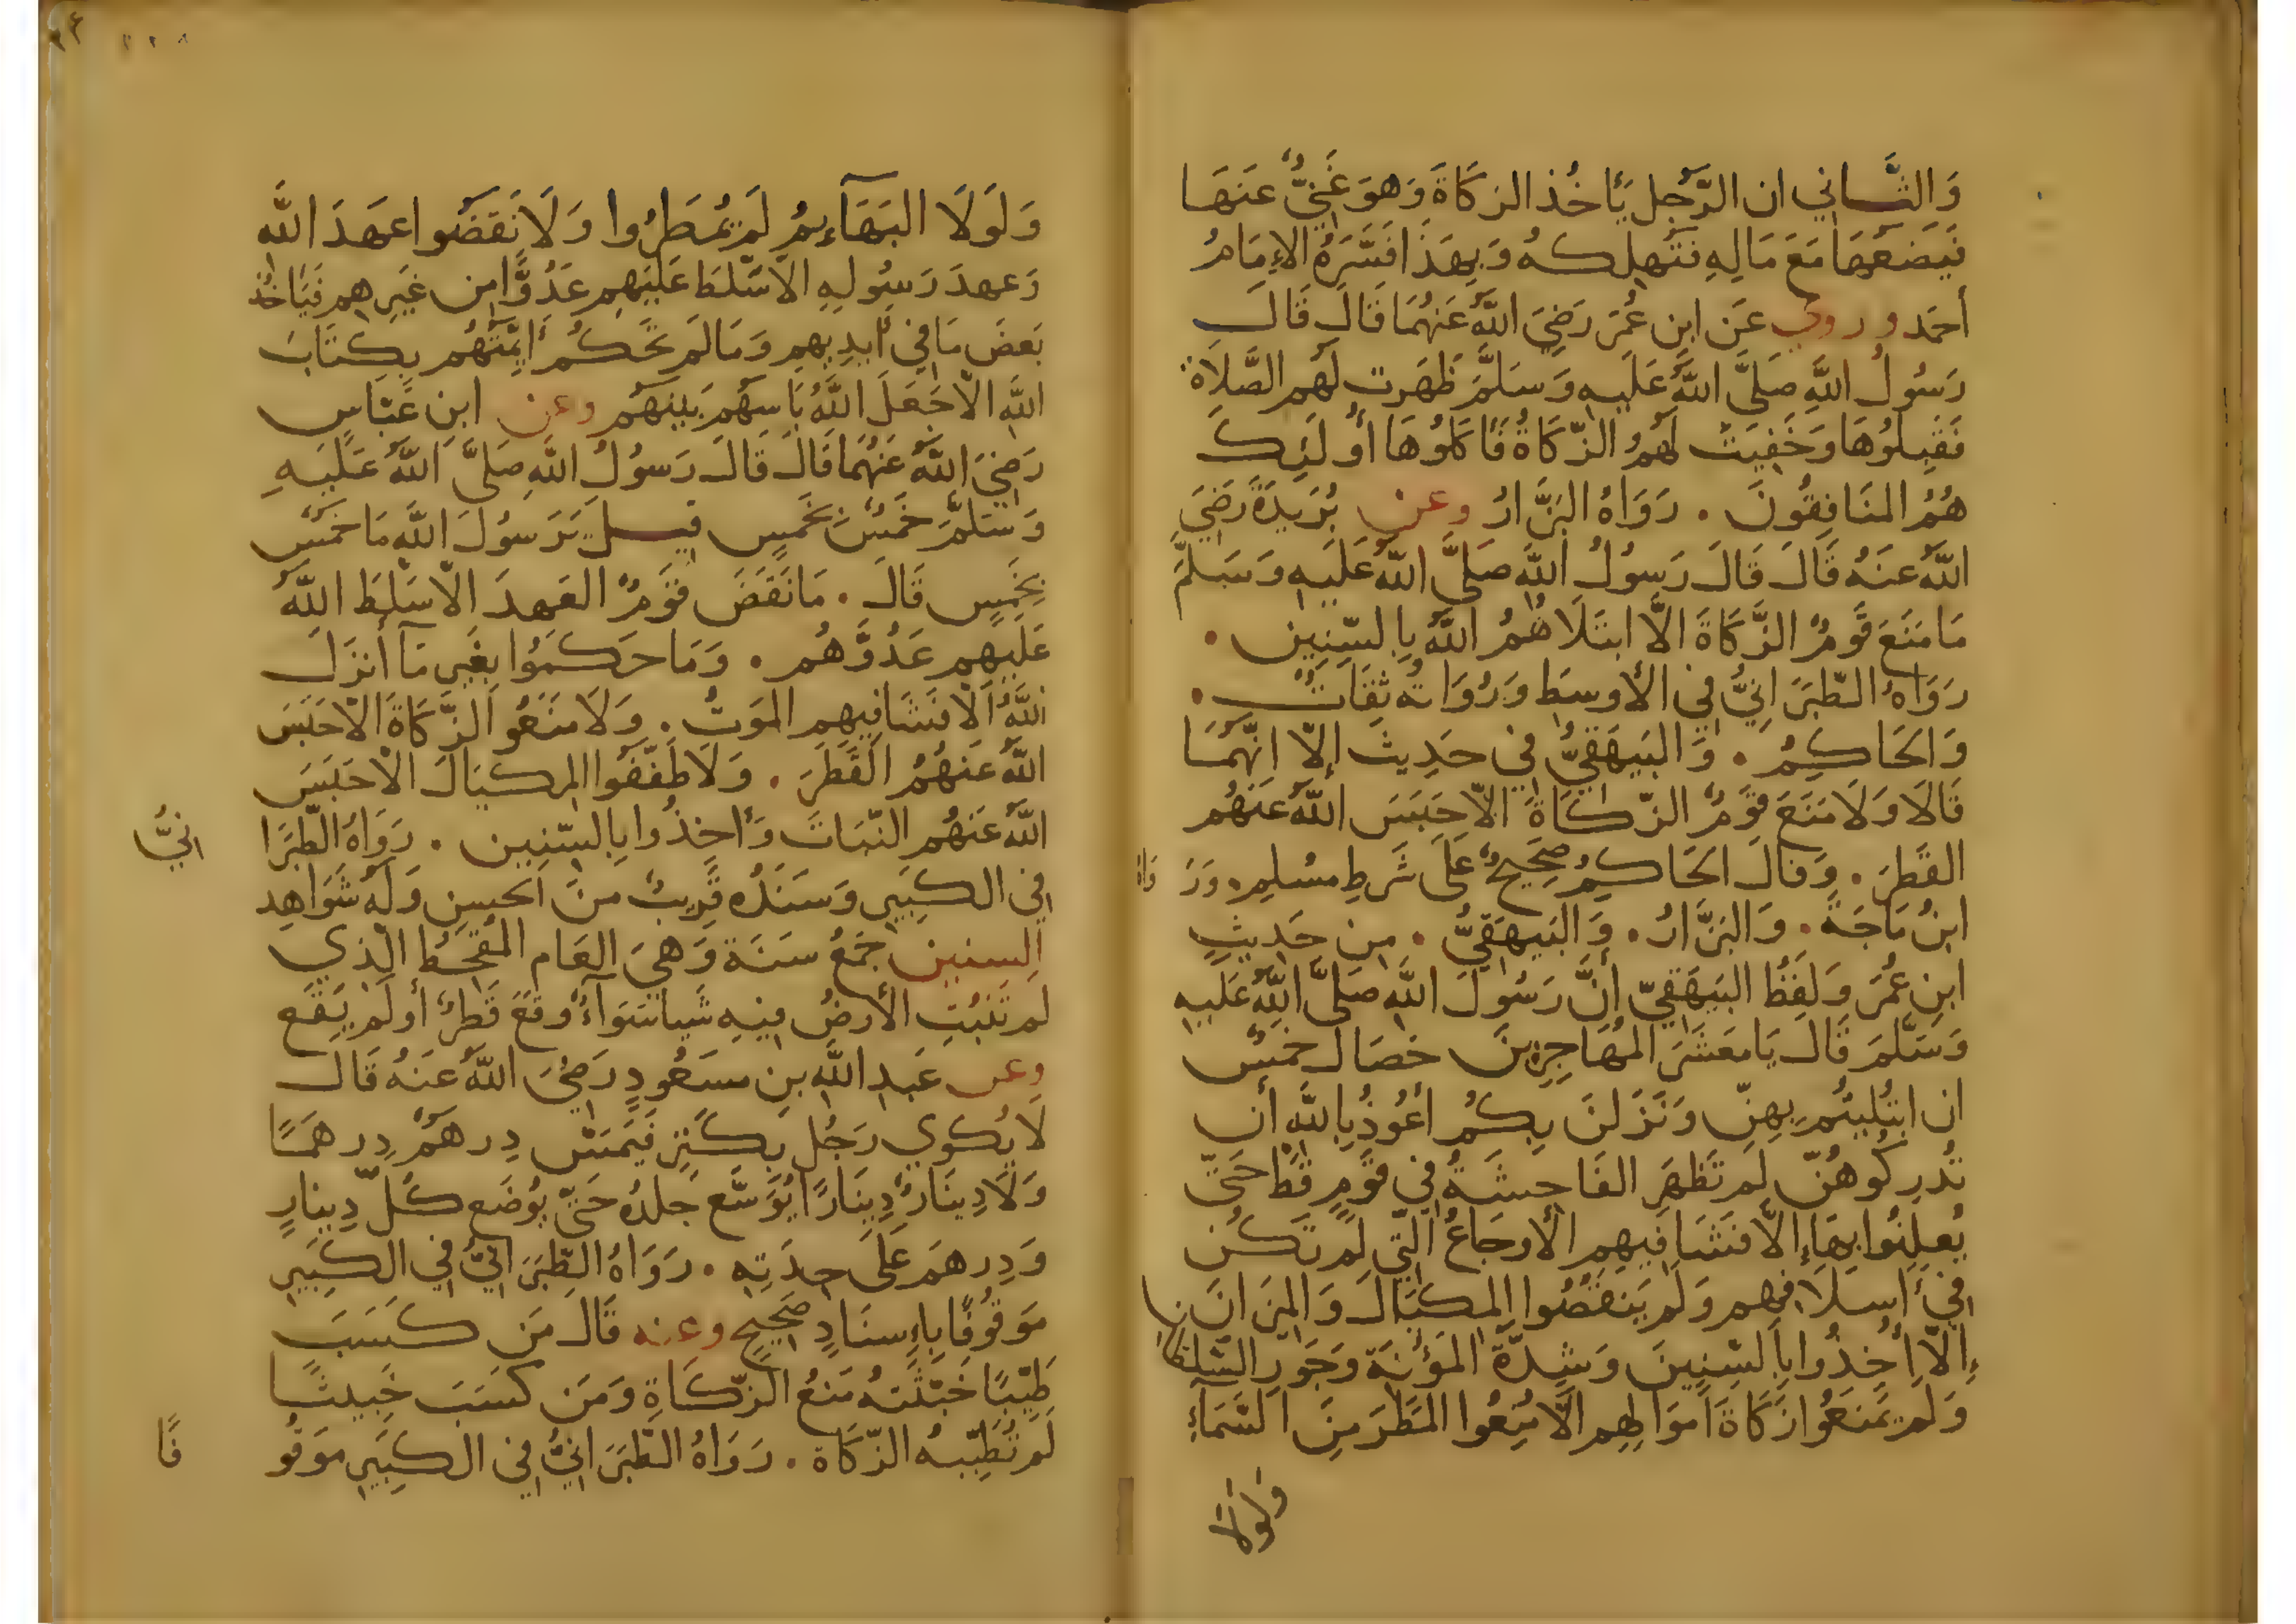 وَالثَّاني ان الرَّجل يَأخُذ الزكَاةَ وَهوَ غَنِيٌّ عَنهَا
فَيَضعَهَا مَعَ مَالِهِ فتُهلِكهُ وَبِهَذَا فَسَّرَهُ الإمَامُ
أحمَد وروي عَن ابنِ عُمَرَ رَضِيَ اللَّهُ عَنهُمَا قَالَ قَالَ
رَسُولُ اللَّهِ صَلَّى اللَّهُ عَلَيهِ وَسَلَّمَ ظَهَرت لَهُم الصَّلاَة
فَقَبِلوُهَا وَخَفِيَتْ لَهُمُ الزَّكَاةُ فَأكلوُهَا أولَئِكَ
هُمُ المنَافِقُونَ . رَوَاهُ البَزَّارُ وعن بُرَيدَةَ رَضِيَ
اللَّهُ عَنهُ قَالَ قَالَ رَسُولُ اللَّهِ صَلَّى اللَّهُ عَلَيهِ وَسَلَّمَ
مَا مَنَعَ قَومٌ الزَّكَاةَ الاَّ ابتَلَاهُمُ اللَّهُ بِالسِّنِين .
رَوَاهُ الطَّبَرَانِيُّ فِي الأَوسَطِ وَرُوَاتُه ثِقَاتٌ .
وَالحَاكِمُ . وَالبَيهَقِيُّ فِي حَدِيث إلاّ انَّهُمَا
قَالَا وَلَا مَنَعَ قَومٌ الزَّكَاةَ الاَّ حَبَسَ اللَّهُ عَنهُم
القَطرَ . وَقالَ الحَاكِمُ صَحِيحٌ عَلَى شَرطِ مسُلِمٍ . وَرَ وَاهُ
ابنُ مَاجَه . وَالبَزَّارُ . وَالبَيهَقِيُّ . مِن حَدِيثِ
ابنِ عُمَرَ وَلَفظُ البَيهَقِيّ أنَّ رَسُولَ اللَّهِ صَلَّى اللَّهُ عَلَيهِ
وَسَلَّمَ قَالَ يَا مَعشَرَ المُهَاجِرِينَ خصَال خمسٌ
ان ابتُلِيتُم بِهِنّ وَنَزَلنَ بِكُم أعُوذُ بِاللَّهِ أن
تُدرِكُوهُنّ لَم تَظهَرِ الفَاحِشَةُ فِي قَومٍ قَط حَتّى
يُعلِنُوا بِهَا إلاَّ فَشَا فِيهِم الأوجَاعُ الَّتِي لَم تَكُن
فِي أسلَافِهِم وَلَم يَنقُصُوا المِكيَالَ وَالمِيزَانَ
إلاَّ أخِذُوا بِالسِّنِينَ وَشِدَّة المَؤنَة وَجَورِ السُّلطَانِ
وَلَم يَمنَعُوا زَكَاةَ أموَالِهِم الاَّ مُنِعُوا المَطَرَ مِنَ السَّمَاءِ
وَلَولَا
وَلَولَا البَهَآءِمُ لَم يُمطَرُوا وَلَا نَقَضُوا عَهدَ اللَّه
وَعهدَ رَسُولِهِ الاَّ سُلّطَ عَلَيهِم عَدُوًّا مِن غَيرِهِم فَيَأخُذ
بَعضَ مَا فِي أيدِيهِم وَمَا لَم تَحكُم أيِمَّتُهُم بِكِتَابِ
اللَّهِ الاَّ جَعَلَ اللَّهُ بَاسهُم بَينَهُم وعن ابنِ عَبَّاسٍ
رَضِيَ اللَّهُ عَنهُمَا قَالَ قَالَ رَسُولُ اللَّهِ صَلَّى اللَّهُ عَلَيهِ
وَسَلَّمَ خَمسٌ بخَمسٍ قيل يَرَسُولَ اللَّهِ مَا خمسٌ
بِخَمسٍ قَالَ . مَا نَقَضَ قَومٌ العَهدَ الاَّ سَلّطَ اللَّهُ
عَلَيهِم عَدُوَّهُم . وَمَا حَكَمُوا بِغَيرِ مَآ أنزَلَ
اللَّهُ الاَّ فَشَا فِيهِم المَوتُ . وَلَا مَنَعُو الزَّكَاةَ الاَّ حَبَسَ
اللَّهُ عَنهُمُ القَطرَ . وَلَا طَفّفُوا المِكيَالَ الاَّ حَبَسَ
اللَّهُ عَنهُم النّبَاتَ وَأخِذُوا بِالسِّنِين . رَوَاهُ الطّبَرَا انِيُّ
فِي الكَبِيرِ وَسَنَدُه قَرِيبٌ منَ الحسنِ وَلَه شَوَاهِد
السنين جَمعُ سَنَة وَهِيَ العَام المُقحِط الَّذِي
لَم تُنبُتِ الأرضُ فِيهِ شَيا سَوَآءٌ وَقَعَ قَطرٌ أو لَم يَقَع
وعن عَبدِ اللَّهِ بنِ مسَعُودٍ رَضِيَ اللَّهُ عَنهُ قَالَ
لَا يُكوي رَجُل بِكَنزٍ فَيَمَسّ دِرهَمٌ دِرهَمًا
وَلَا دِينَارٌ دِينَارًا يُوَسَّع جِلدُه حَتَّى يُوضَع كُلّ دِينارٍ
وَدِرهَم عَلَى حِدَتِهِ . رَوَاهُ الطّبَرَانِيُّ فِي الكَبِيرِ
مَوقُوفًا بِإسنَادٍ صَحِيحٍ وعنه قَالَ مَن كَسَبَ
طَيِّبًا خَبّثَتهُ مَنعُ الزّكَاةِ وَمَن كَسَبَ خَبِيثًا
لَم تُطَيِّبهُ الزَّكَاة . رَوَاهُ الطّبَرَانِيُّ فِي الكَبِيرِ مَوقُو فًا